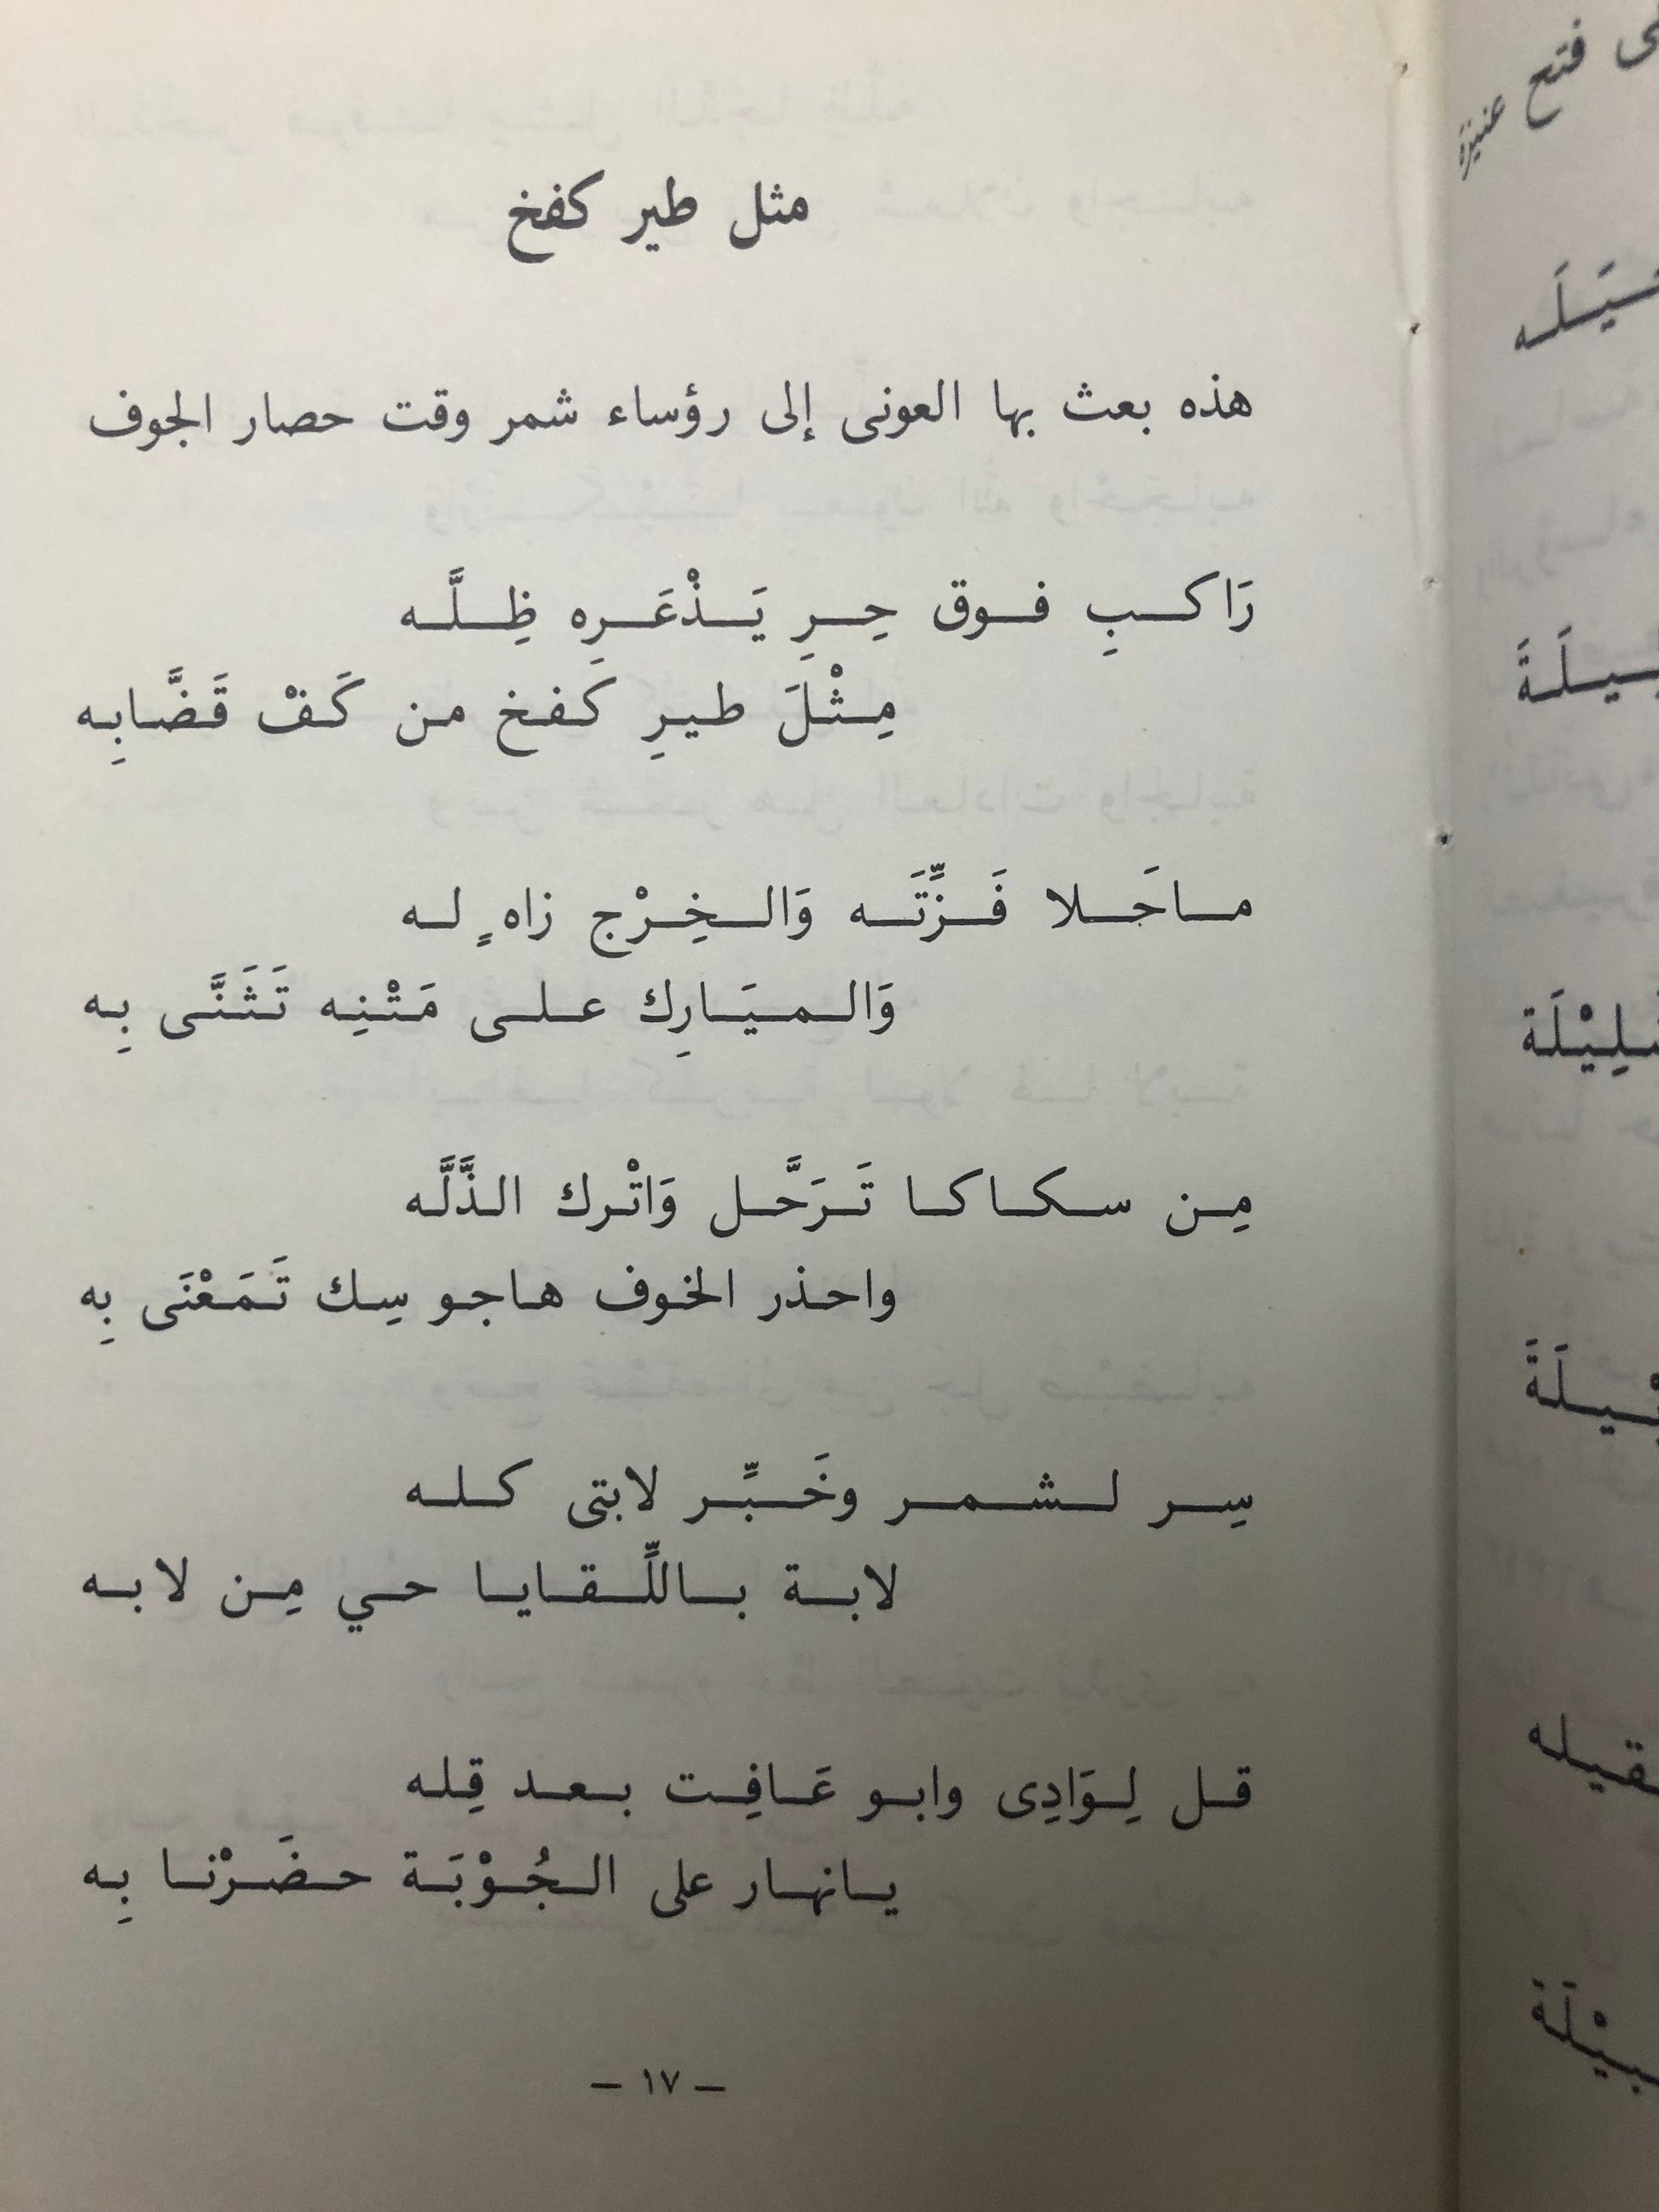 مثل طير كفخ
هذه بعث بها العونى إلى رؤساء شمر وقت حصار الجوف
رَاكبِ فوق حِرِ يَذْعَرِه ظِلَّه
مِثْلَ طيرِ كَفخ من كَفْ قَضَّابِه
ماحَلا فَزِّتَه وَالخِرْج زاهٍ له
وَالميَارِك على مَتْنِه تَثَنَّى بِه
مِن سكاكا تَرَحَّل وَاتْرك الذَّلَّه
واحذر الخوف هاجو سِك تَمَعْنَى بِه
سِر لشمر وخَبِّر لابتى كله
لابة باللِّقايا حي مِن لابه
قل لِوَادِى وابو عَافِت بعد قِله
يانهار على الجُوْبَة حضَرْنا بِه
– ١٧ –
فتح عنيزة